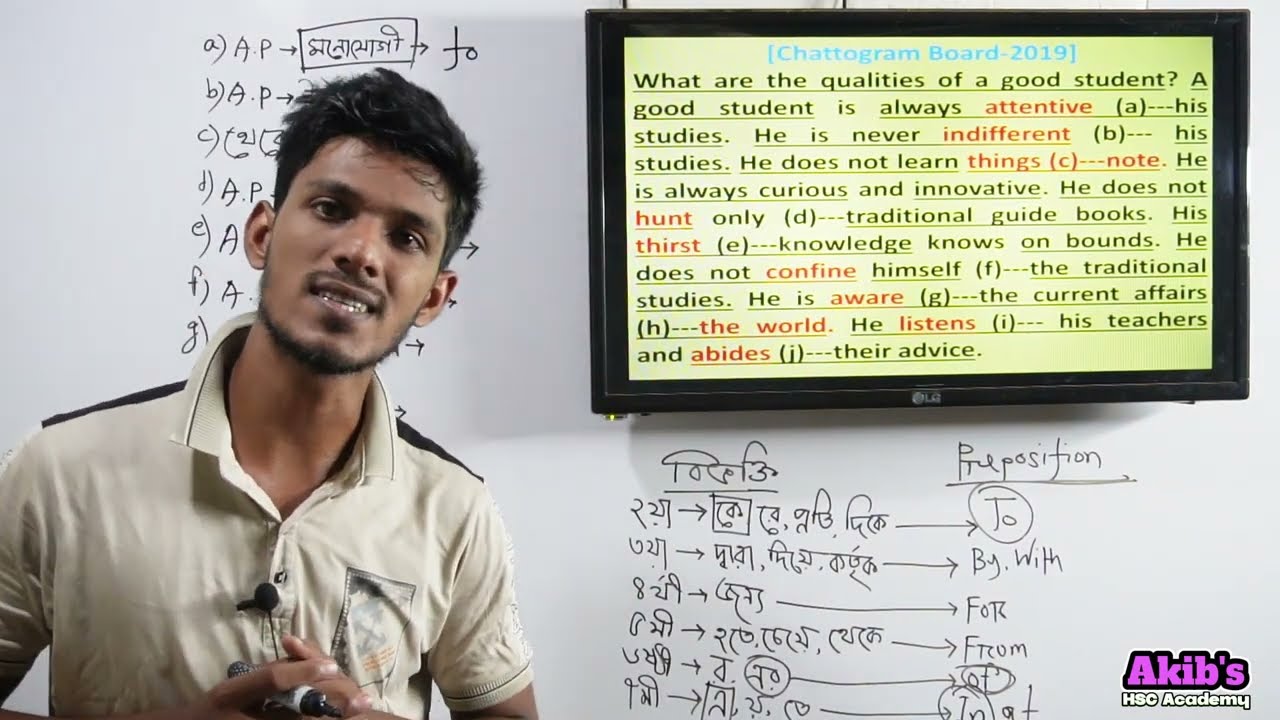 a) A.P → মনোযোগী → to
b) A.P →
c)
d) A.P
e) A
f) A.
g)
[Chattogram Board-2019]
What are the qualities of a good student? A
good student is always attentive (a)---his
studies. He is never indifferent (b)--- his
studies. He does not learn things (c)---note. He
is always curious and innovative. He does not
hunt only (d)---traditional guide books. His
thirst (e)---knowledge knows on bounds. He
does not confine himself (f)---the traditional
studies. He is aware (g)---the current affairs
(h)---the world. He listens (i)--- his teachers
and abides (j)---their advice.
LG
বিভক্তি Preposition
২য়া → কে রে, প্রতি, দিকে → To
৩য়া → দ্বারা, দিয়ে, কর্তৃক → By, With
৪র্থী → জন্য → For
৫মী → হতে, চেয়ে, থেকে → From
৬ষ্ঠী → র, এর → of
৭মী → এ, য়, তে → In, at
Akib's
HSC Academy